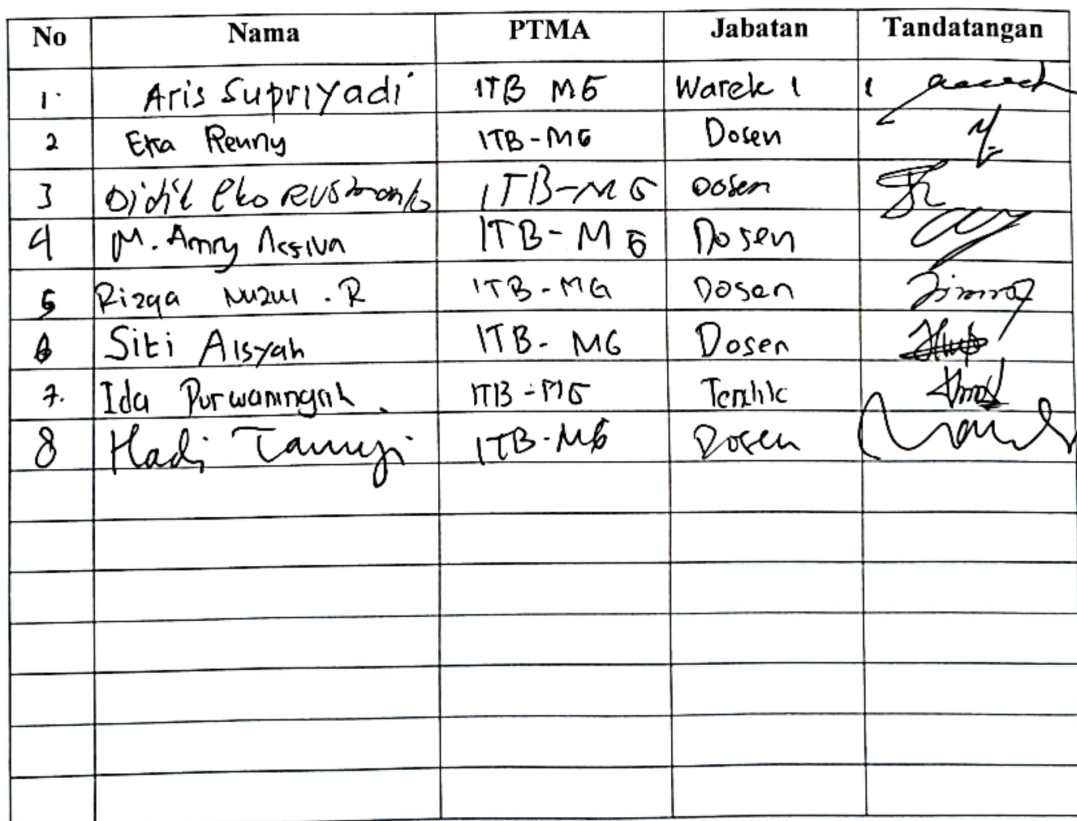 No Nama PTMA Jabatan Tandatangan
1. Aris Supriyadi ITB MG Warek 1 1
2 Eka Renny ITB-MG Dosen
3 Didik Eko ITB-MG Dosen
4 M. Amry ITB-MG Dosen
5 Rizqa Nuzul . R ITB-MG Dosen
6 Siti Aisyah ITB-MG Dosen
7. Ida Purwaningsih. ITB-MG
8 Hadi ITB-MG Dosen